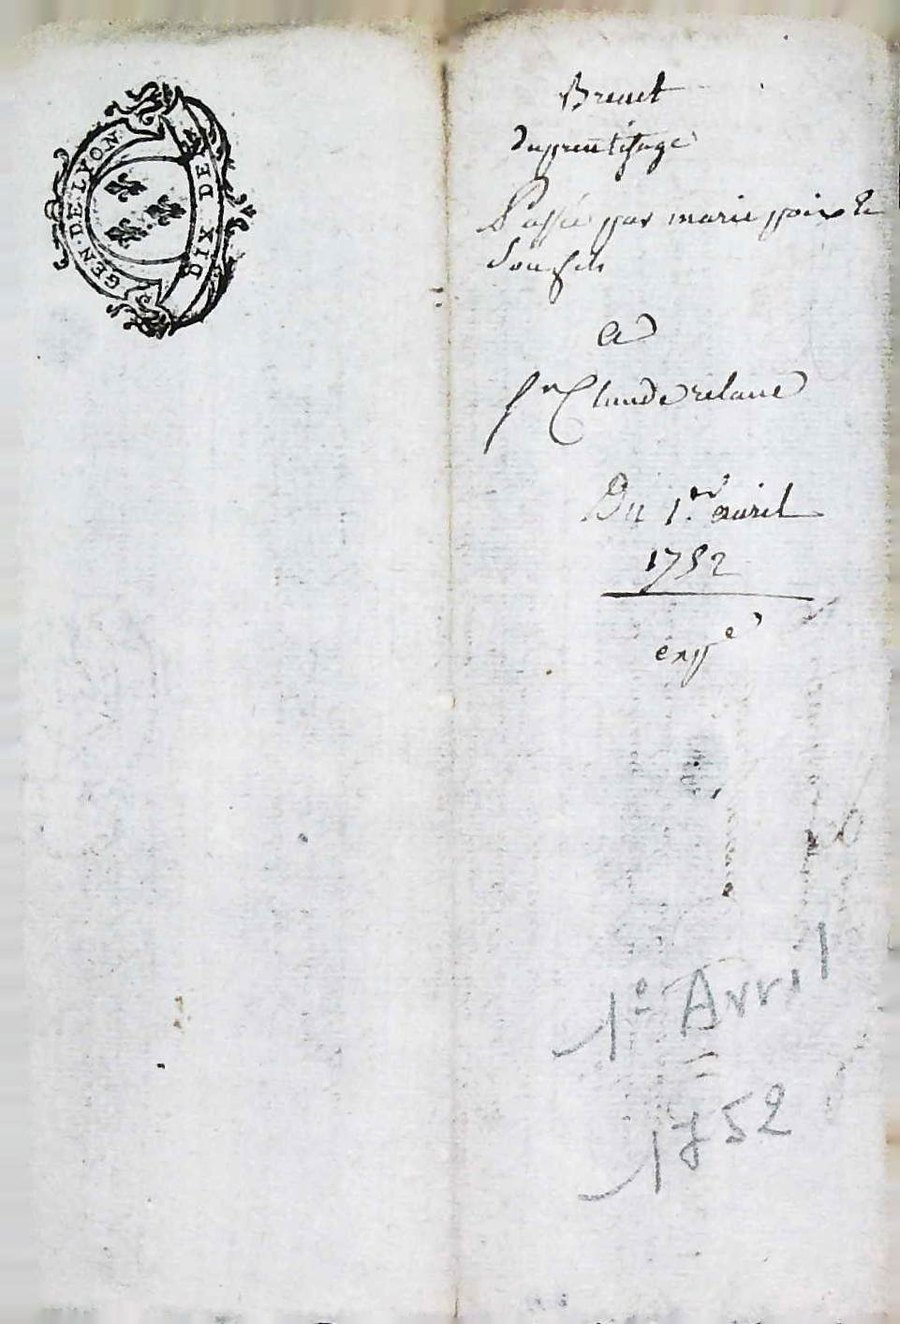 GEN. DE LYON
DIX DEN
Brevet
daprentissage
Passée par marie poix &
son fils
a
sr Claude relave
Du 1er. avril
1752
expe
1o Avril
1752